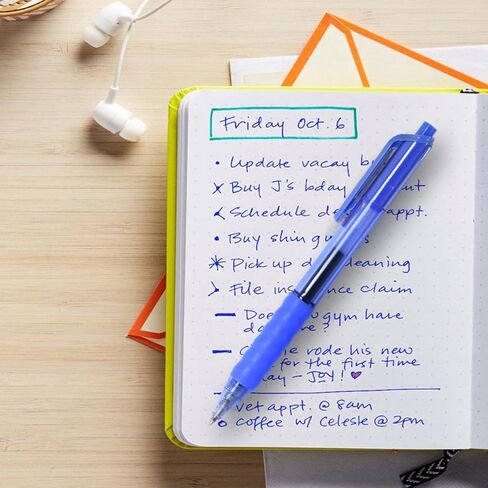 Friday Oct. 6
• Update vacay
x Buy J's bday
Schedule appt.
• Buy shin
* Pick up cleaning
> File claim
— gym have
?
— rode his new
for the first time
– JOY! ♥
vet appt. @ 8am
o coffee w/ Celeste @ 2pm